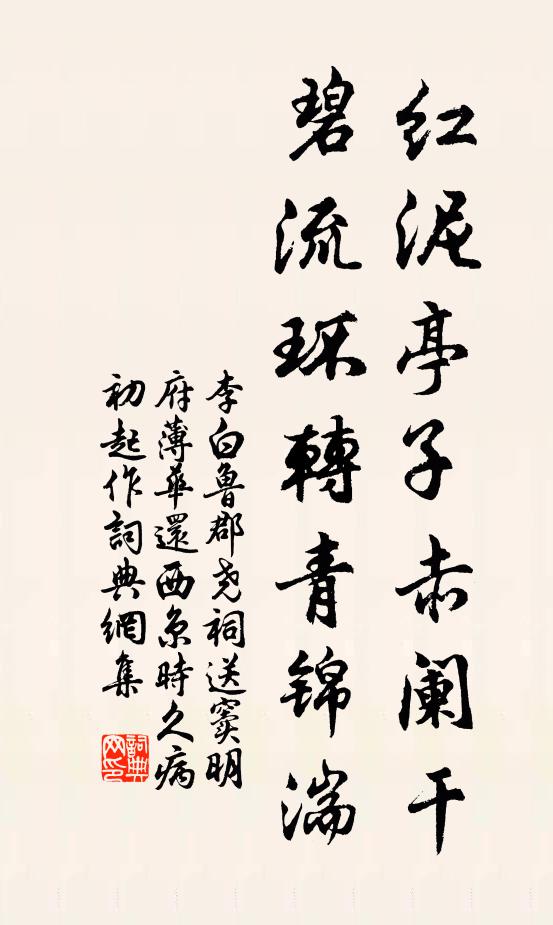 红泥亭子赤阑干
碧流环轉青锦湍
李白魯郡尧祠送窦明
府薄華還西京時久病
初起作詞典網集
詞典
网印